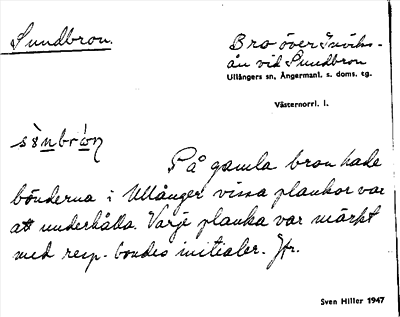 Sundbron.
Bro över Inviks-
ån vid Sundbron
Ullångers sn, Ångermanl. s. doms. tg.
Västernorrl. l.
sùnbrón
På gamla bron hade
bönderna i Ullånger vissa plankor var
att underhålla. Varje planka var märkt
med resp. bondes initialer. Jfr.
Sven Hiller 1947